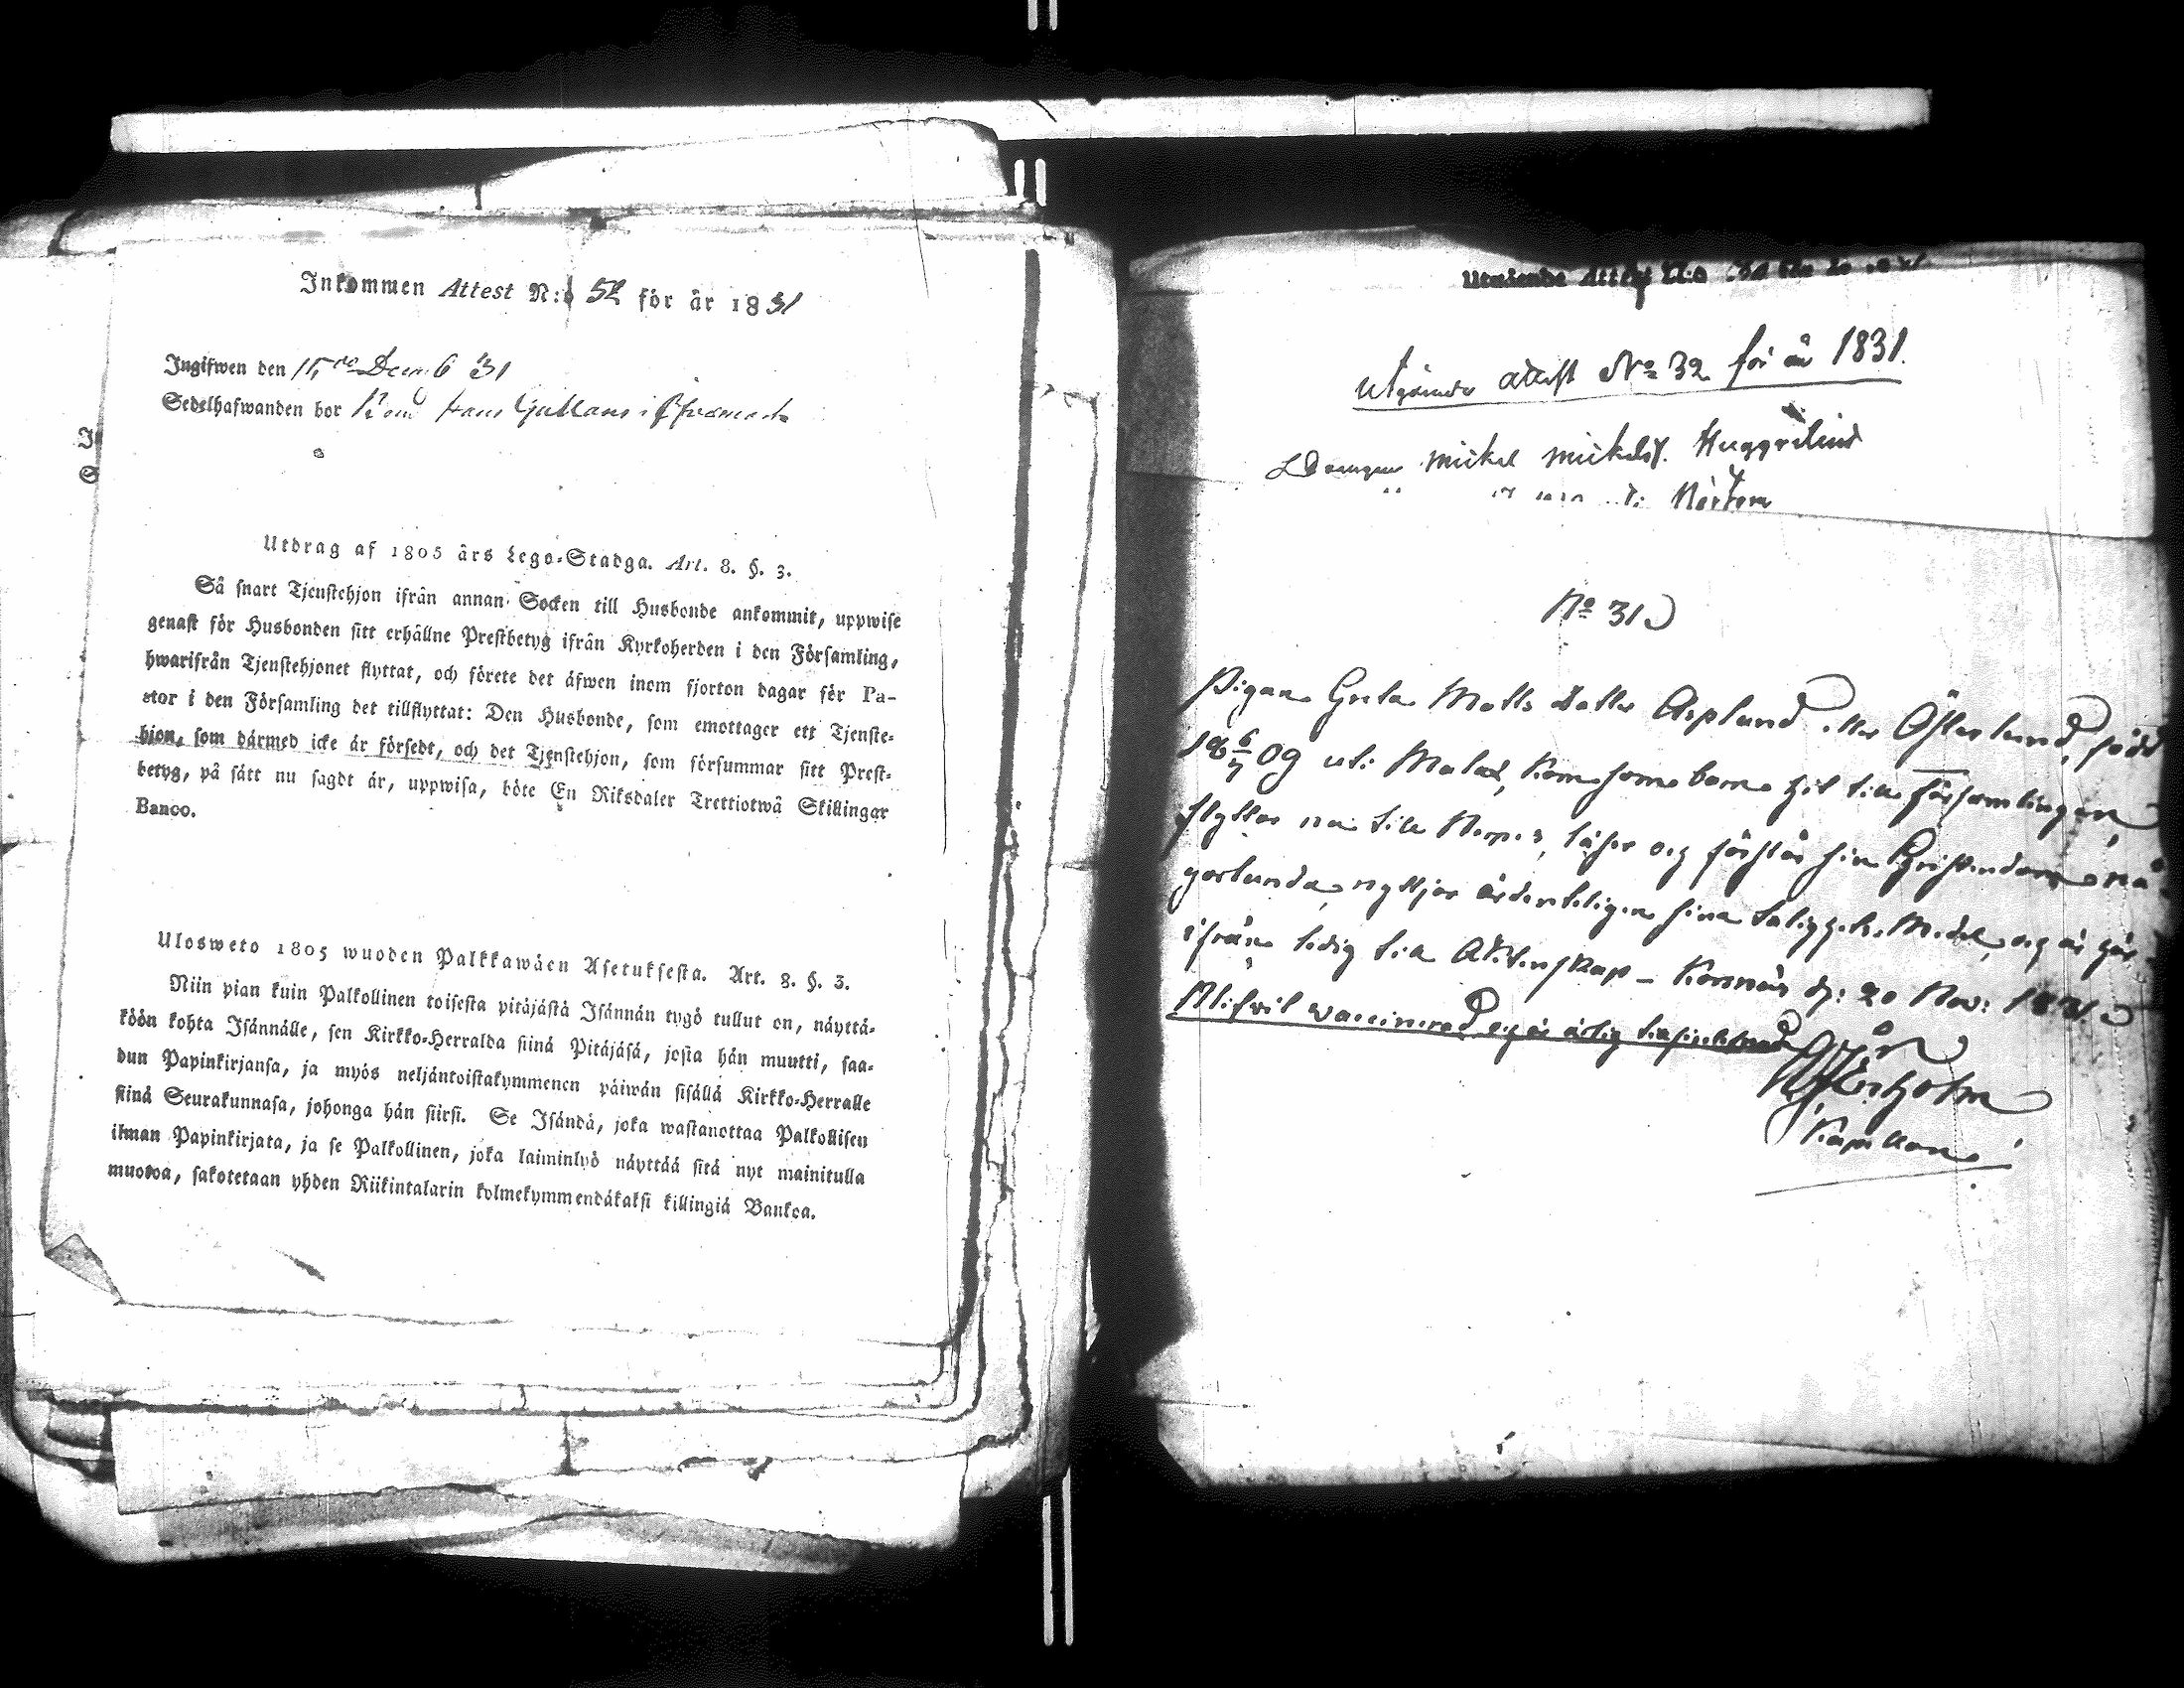 Inkommen Attest N:o 52 för år 1831
Ingifwen den 15 de Decemb 31
Sedelhafwanden bor hans i
Utdrag af 1805 års Lego-Stadga. Art. 8. §. 3.
Så snart Tjenstehjon ifrån annan Socken till Husbonde ankommit, uppwise
genast för Husbonden sitt erhållne Prestbetyg ifrån Kyrkoherden i den Församling,
hwarifrån Tjenstehjonet flyttat, och förete det äfwen inom fjorton dagar för Pa-
stor i den Församling det tillflyttat: Den Husbonde, som emottager ett Tjenste-
hjon, som därmed icke är försedt, och det Tjenstehjon, som försummar sitt Prest-
betyg, på sätt nu sagdt är, uppwisa, böte En Riksdaler Trettiotwå Skillingar
Banco.
Ulosweto 1805 wuoden Palkkawäen Asetuksesta. Art. 8. §. 3.
Niin pian kuin Palkollinen toisesta pitäjästä Isännän tygö tullut on, näyttä-
köön kohta Isännälle, sen Kirkko-Herralda siinä Pitäjäsä, josta hän muutti, saa-
dun Papinkirjansa, ja myös neljäntoistakymmenen päiwän sisällä Kirkko-Herralle
siinä Seurakunnasa, johonga hän siirsi. Se Isändä, joka wastanottaa Palkollisen
ilman Papinkirjata, ja se Palkollinen, joka laiminlyö näyttää sitä nyt mainitulla
muotoa, sakotetaan yhden Riikintalarin kolmekymmendäkaksi killingiä Bankoa.
Utgående Attest N:o
Utgående attest No 32 för år 1831.
Drengen Mickel Mickelss. Huggvilius
Nörtom
No 31
Pigan Greta Matts dotter Asplund eller Österlund, född
18 6/7 09 uti Malax, kom som barn hit till församlingen,
flyttar nu till Nerpes, läser og förstår sin Christendom nå-
gorlunda, nyttjar ordenteligen sina Saliggh. Medel, og är här-
ifrån ledig till Ächtenskap - Korsnäs d: 20 Nov: 1831
Blifvit vaccinerad og är ärlig
Kapellan